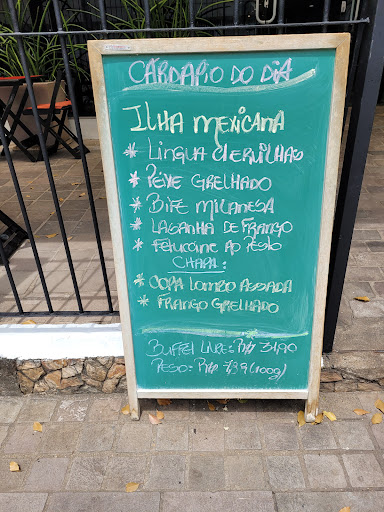 CARDAPIO DO DIA
ILHA MEXICANA
* LINGUA C/ ERVILHAS
* PEIXE GRELHADO
* BIFE MILANESA
* LASANHA DE FRANGO
* FETUCCINE AO PESTO
CHAPA:
* COPA LOMBO ASSADA
* FRANGO GRELHADO
BUFFET LIVRE: R$ 31,90
PESO: R$ 7,39 (100g)